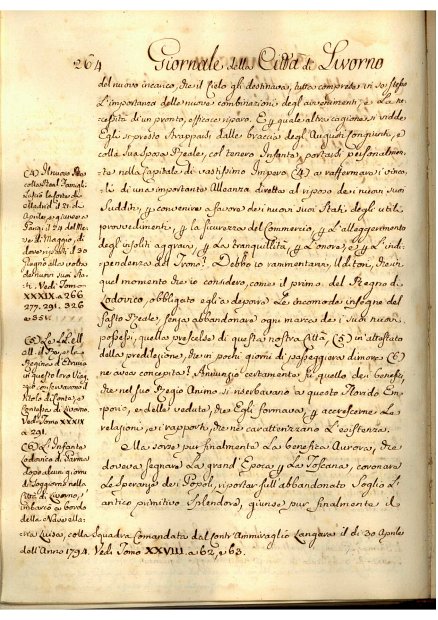 264 Giornale della Città di Livorno
del nuovo incarico, che il Cielo gli destinava, tutta comprese in se stesso
L'importanza delle nuove combinazioni degl'avvenimenti, e La ne-
cessità di un pronto, efficace riparo. E per quale altra cagione si vidde
Egli sì presto strapparsi dalle braccia degl'Augusti Congiunti, e
colla sua Sposa Reale, col tenero Infante, portarsi personalmen-
te nella Capitale di vastissimo Impero (4) a raffermare i vinco-
li di una importante Alleanza diretta al riposo dei nuovi suoi
Sudditi, per convenire a favore dei nuovi suoi Stati degli utili
provvedimenti per la sicurezza del Commercio, per L'alleggerimento
degl'insoliti aggravj, per La tranquillità, per L'onore, e per L'indi-
pendenza del Trono? Debbo io rammentarvi, Uditori, che in
quel momento che io considero, come il primo del Regno di
Lodovico, obbligato egli a deporre Le incomode insegne del
fasto Reale, senza abbandonare ogni marca dei suoi nuovi
possessi, quella prescelse di questa nostra Città (5) in attestato
della predilezione, che in pochi giorni di passeggiera dimora (6)
ne avea concepita? Annunzio certamente fù quello dei benefizj,
che nel suo Regio Animo si riserbavano a questo florido Em-
porio, e delle vedute, che Egli formava, per accrescerne Le
relazioni, e i rapporti, che ne caratterizzano L'esistenza.
Ma sorse pur finalmente La benefica Aurora, che
doveva segnare La grand'Epoca per La Toscana, coronare
Le Speranze dei Popoli, riportar sull'abbandonato Soglio L'
antico primitivo Splendore, giunse pur finalmente il
(4) Il nuovo Re
colla Real Famigl.
Lasciò la Corte di
Madrid il 21. di
Aprile, e giunse a
Parigi il 24. del Me-
se di Maggio, di
dove ripartì il 30
Giugno alla volta
dei nuovi suoi Sta-
ti. Vedi Tomo
XXXIX a 266
277. 291. 326
e 351.
(5) Le LL. MM.
il Re, e la
Regina d'Etruria
in questo loro Viag-
gio, conservarono il
titolo di Conte, e
Contessa di Livorno.
Vedi Tomo XXXIX
a 291.
(6) L'Infante
Lodovico di Parma
dopo alcuni giorni
di Soggiorno nella
Città di Livorno, s'
imbarcò a bordo
della Nave alla-
ra Luisa, colla Squadra Comandata dal Contr'Ammiraglio Langara il dì 30 Aprile
dell'Anno 1794. Vedi Tomo XXVIII. a 62, e 63.